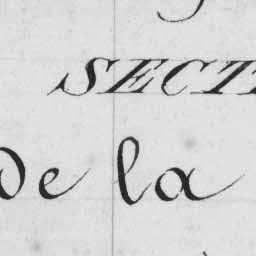 SECT
de la